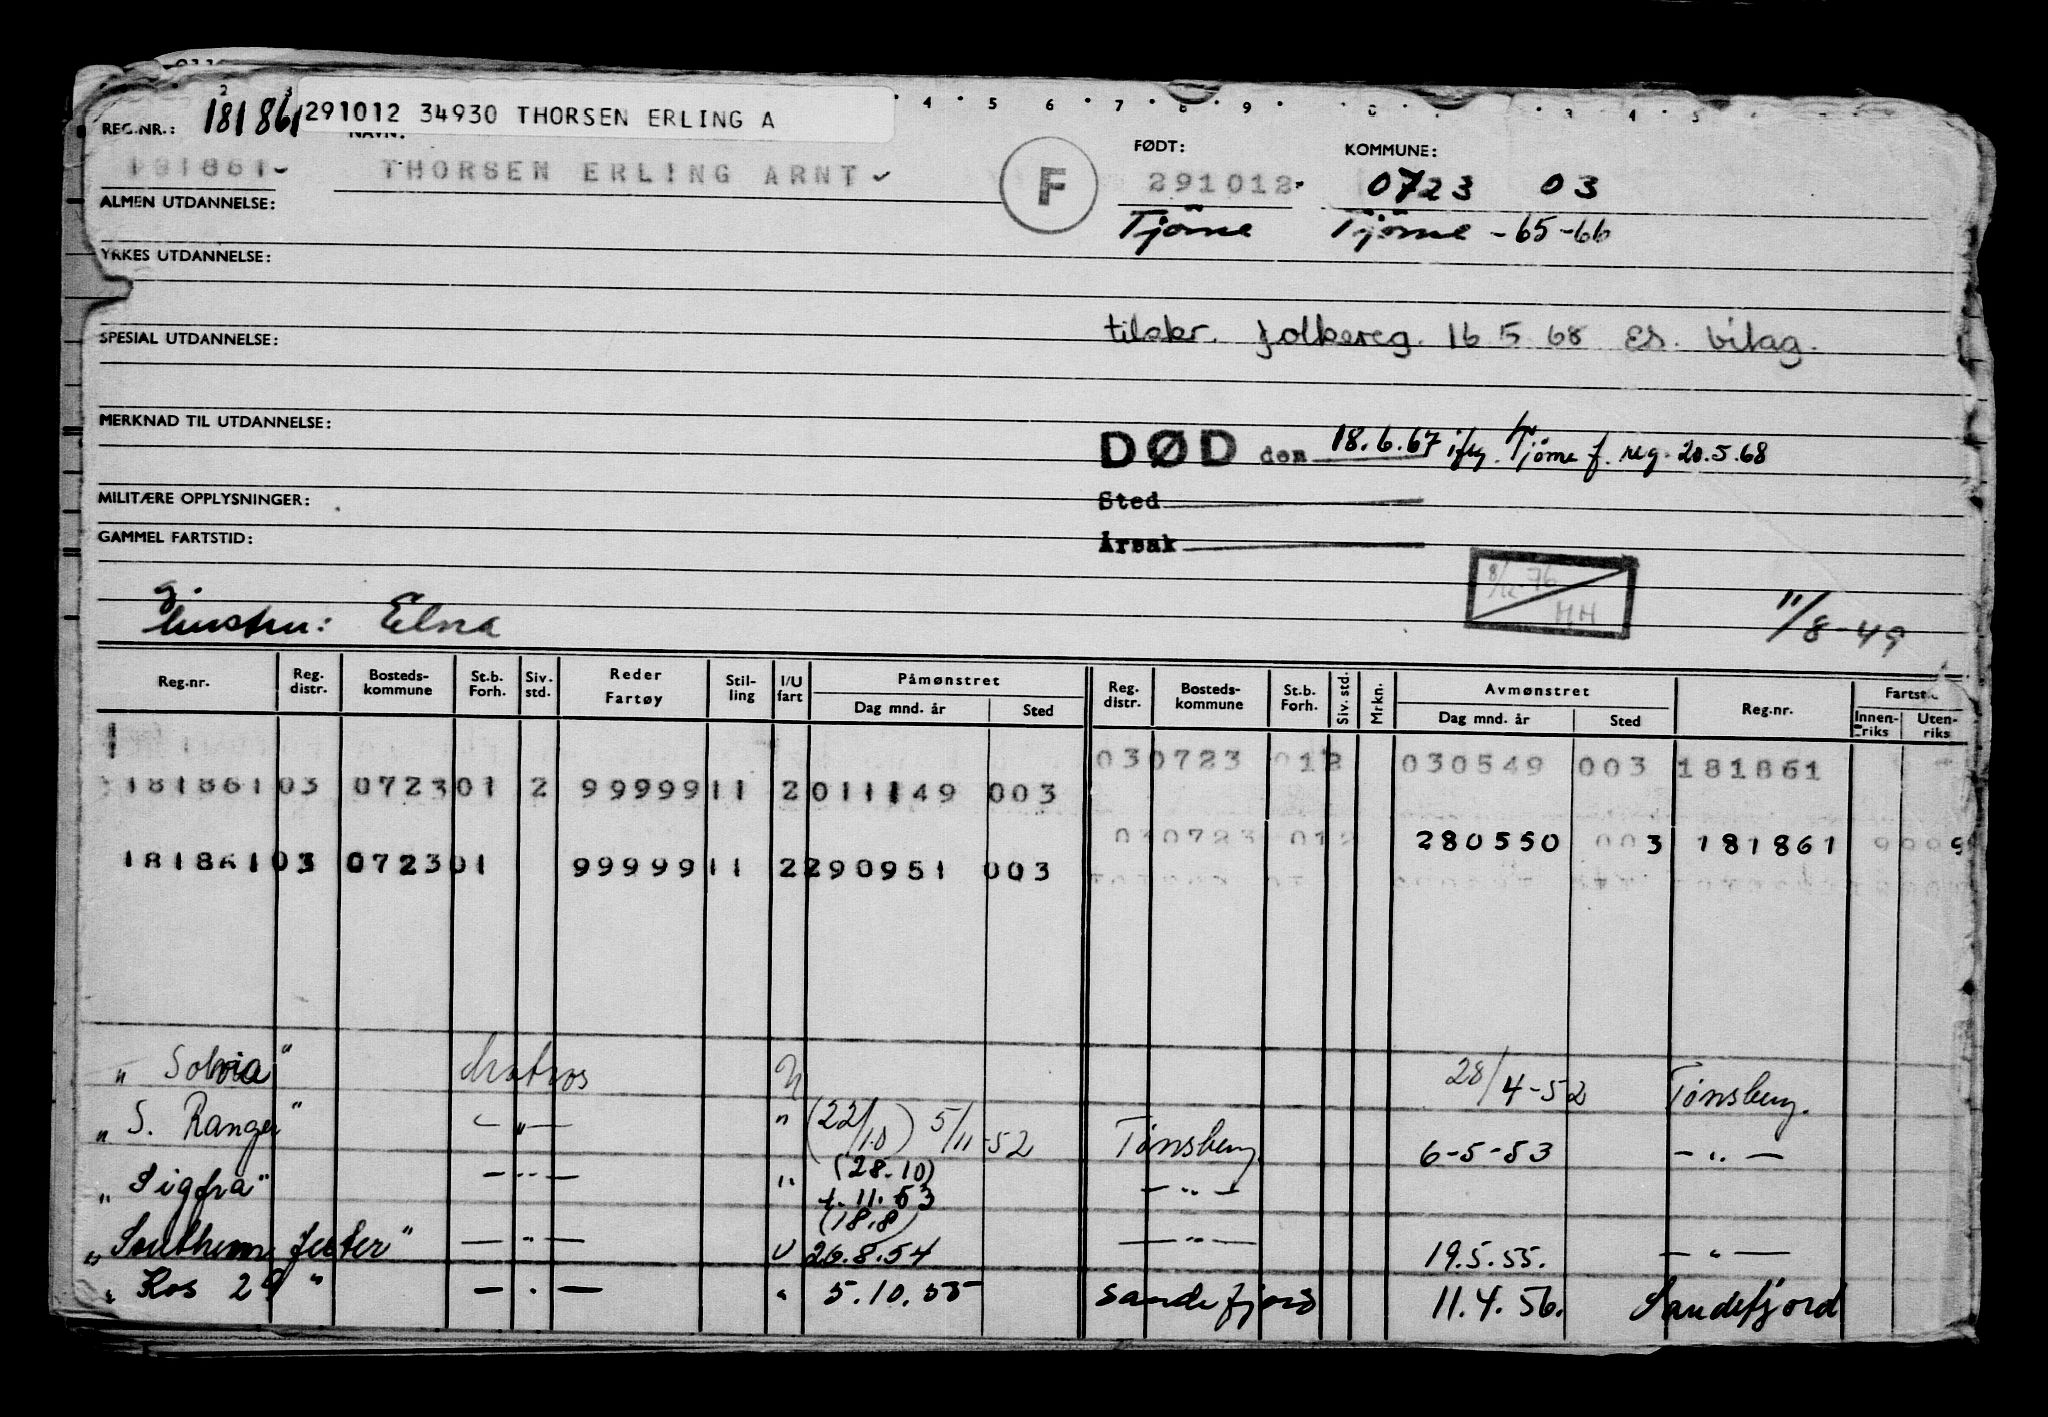 291012 34930 THORSEN ERLING A
REG.NR.: 181861 NAVN: FØDT: KOMMUNE:
181861 THORSEN ERLING ARNT F 291012 0723 03
ALMEN UTDANNELSE: Tjöme Tjöme -65-66
YRKES UTDANNELSE:
SPESIAL UTDANNELSE: tilskr. folkereg. 16 5 68 Es. bilag.
MERKNAD TIL UTDANNELSE:
DØD den 18.6.67 iflg. Tjöme f. reg. 20.5.68
MILITÆRE OPPLYSNINGER: Sted
GAMMEL FARTSTID: Årsak
8/12-76 HH
g. hustru: Elna 11/8-49
Reg.nr. Reg. distr. Bosteds-kommune St.b. Forh. Siv. std. Reder Fartøy Stil-ling I/U fart Påmønstret Reg. distr. Bosteds-kommune St.b. Forh. Siv. std. Mrkn. Avmønstret Reg.nr.
Dag mnd. år Sted Dag mnd. år Sted Innen-riks Uten-riks
030723 012 030549 003 181861
181861 03 0723 01 2 99999 11 2 011149 003
030723 012 280550 003 181861 9999
181861 03 0723 01 99999 11 2 290951 003
"Solvia" Matros U 28/4-52 Tønsberg.
"S. Ranger" — " — " (22/10) 5/11-52 Tønsberg 6-5-53 — " —
"Sigfra" — " — " (28.10) 4.11.53 — " —
(18.8)
"Southern Jester" — " — U 26.8.54 — " — 19.5.55. — " —
"Kos 29" — " — " 5.10.55 Sandefjord 11.4.56. Sandefjord